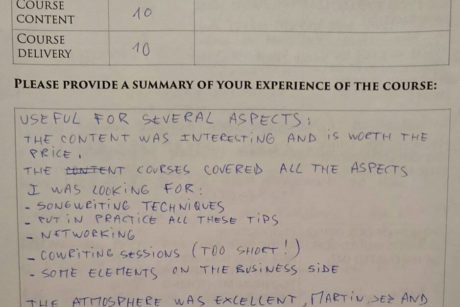 COURSE
CONTENT 10
COURSE
DELIVERY 10
PLEASE PROVIDE A SUMMARY OF YOUR EXPERIENCE OF THE COURSE:
USEFUL FOR SEVERAL ASPECTS:
THE CONTENT WAS INTERESTING AND IS WORTH THE
PRICE.
THE CONTENT COURSES COVERED ALL THE ASPECTS
I WAS LOOKING FOR:
- SONGWRITING TECHNIQUES
- PUT IN PRACTICE ALL THESE TIPS
- NETWORKING
- COWRITING SESSIONS (TOO SHORT!)
- SOME ELEMENTS ON THE BUSINESS SIDE
THE ATMOSPHERE WAS EXCELLENT, MARTIN, JEZ AND